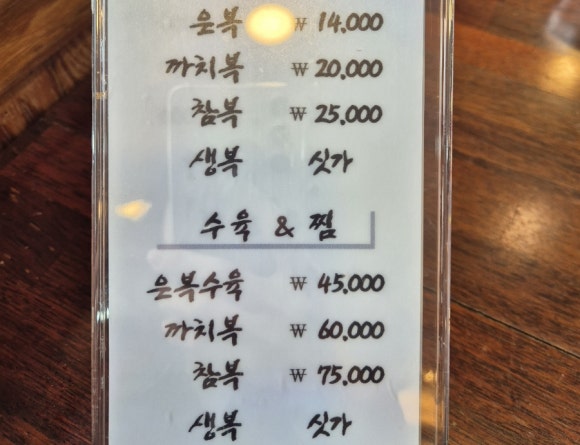 은복 ₩ 14,000
까치복 ₩ 20,000
참복 ₩ 25,000
생복 싯가
수육 & 찜
은복수육 ₩ 45,000
까치복 ₩ 60,000
참복 ₩ 75,000
생복 싯가